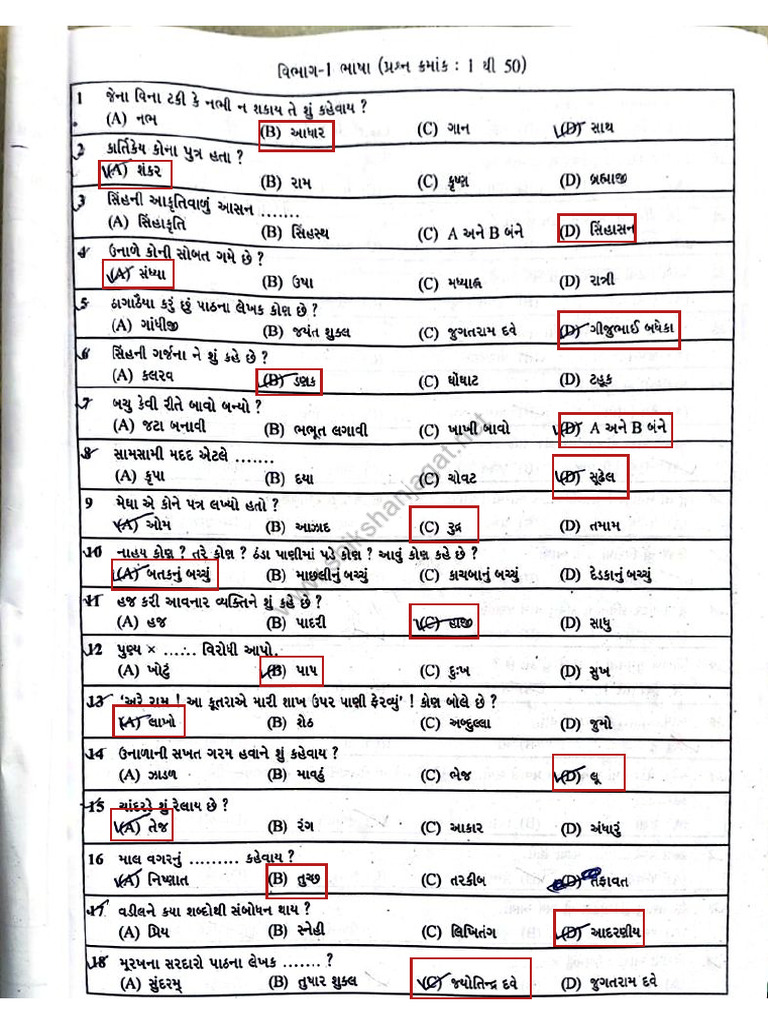 વિભાગ-I ભાષા (પ્રશ્ન ક્રમાંક : 1 થી 50)
1 જેના વિના ટકી કે નભી ન શકાય તે શું કહેવાય ?
(A) નભ (B) આધાર (C) ગાન (D) સાથ
2 કાર્તિકેય કોના પુત્ર હતા ?
(A) શંકર (B) રામ (C) કૃષ્ણ (D) બ્રહ્માજી
3 સિંહની આકૃતિવાળું આસન .......
(A) સિંહાકૃતિ (B) સિંહસ્થ (C) A અને B બંને (D) સિંહાસન
4 ઉનાળે કોની સોબત ગમે છે ?
(A) સંધ્યા (B) ઉષા (C) મધ્યાહ્ન (D) રાત્રી
5 ઠાગાઠૈયા કરું છું પાઠના લેખક કોણ છે ?
(A) ગાંધીજી (B) જયંત શુક્લ (C) જુગતરામ દવે (D) ગીજુભાઈ બધેકા
6 સિંહની ગર્જના ને શું કહે છે ?
(A) કલરવ (B) ડણક (C) ઘોંઘાટ (D) ટહૂક
7 બચુ કેવી રીતે બાવો બન્યો ?
(A) જટા બનાવી (B) ભભૂત લગાવી (C) ખાખી બાવો (D) A અને B બંને
8 સામસામી મદદ એટલે .......
(A) કૃપા (B) દયા (C) ચોવટ (D) સૂઢેલ
9 મેઘા એ કોને પત્ર લખ્યો હતો ?
(A) ઓમ (B) આઝાદ (C) રુદ્ર (D) તમામ
10 નાહય કોણ ? તરે કોણ ? ઠંડા પાણીમાં પડે કોણ ? આવું કોણ કહે છે ?
(A) બતકનું બચ્ચું (B) માછલીનું બચ્ચું (C) કાચબાનું બચ્ચું (D) દેડકાનું બચ્ચું
11 હજ કરી આવનાર વ્યક્તિને શું કહે છે ?
(A) હજ (B) પાદરી (C) હાજી (D) સાધુ
12 પુણ્ય × ....... વિરોધી આપો.
(A) ખોટું (B) પાપ (C) દુઃખ (D) સુખ
13 'અરે રામ ! આ કૂતરાએ મારી શાખ ઉપર પાણી ફેરવ્યું' ! કોણ બોલે છે ?
(A) લાખો (B) શેઠ (C) અબ્દુલ્લા (D) જુમો
14 ઉનાળાની સખત ગરમ હવાને શું કહેવાય ?
(A) ઝાકળ (B) માવઠું (C) ભેજ (D) લૂ
15 ચાંદરડો શું રેલાય છે ?
(A) તેજ (B) રંગ (C) આકાર (D) અંધારું
16 માલ વગરનું ......... કહેવાય ?
(A) નિષ્ણાત (B) તુચ્છ (C) તરકીબ (D) તફાવત
17 વડીલને ક્યા શબ્દોથી સંબોધન થાય ?
(A) પ્રિય (B) સ્નેહી (C) લિખિતંગ (D) આદરણીય
18 મૂરખના સરદારો પાઠના લેખક ....... ?
(A) સુંદરમ્ (B) તુષાર શુક્લ (C) જ્યોતિન્દ્ર દવે (D) જુગતરામ દવે
www.shikshanjagat.net